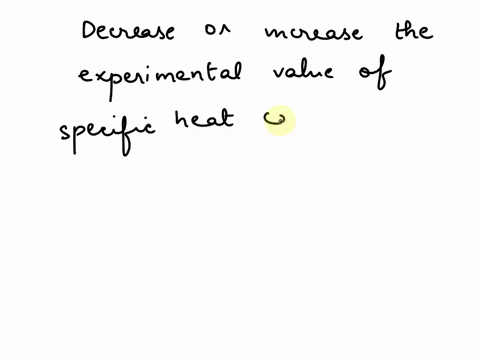 Decrease or increase the
experimental value of
specific heat